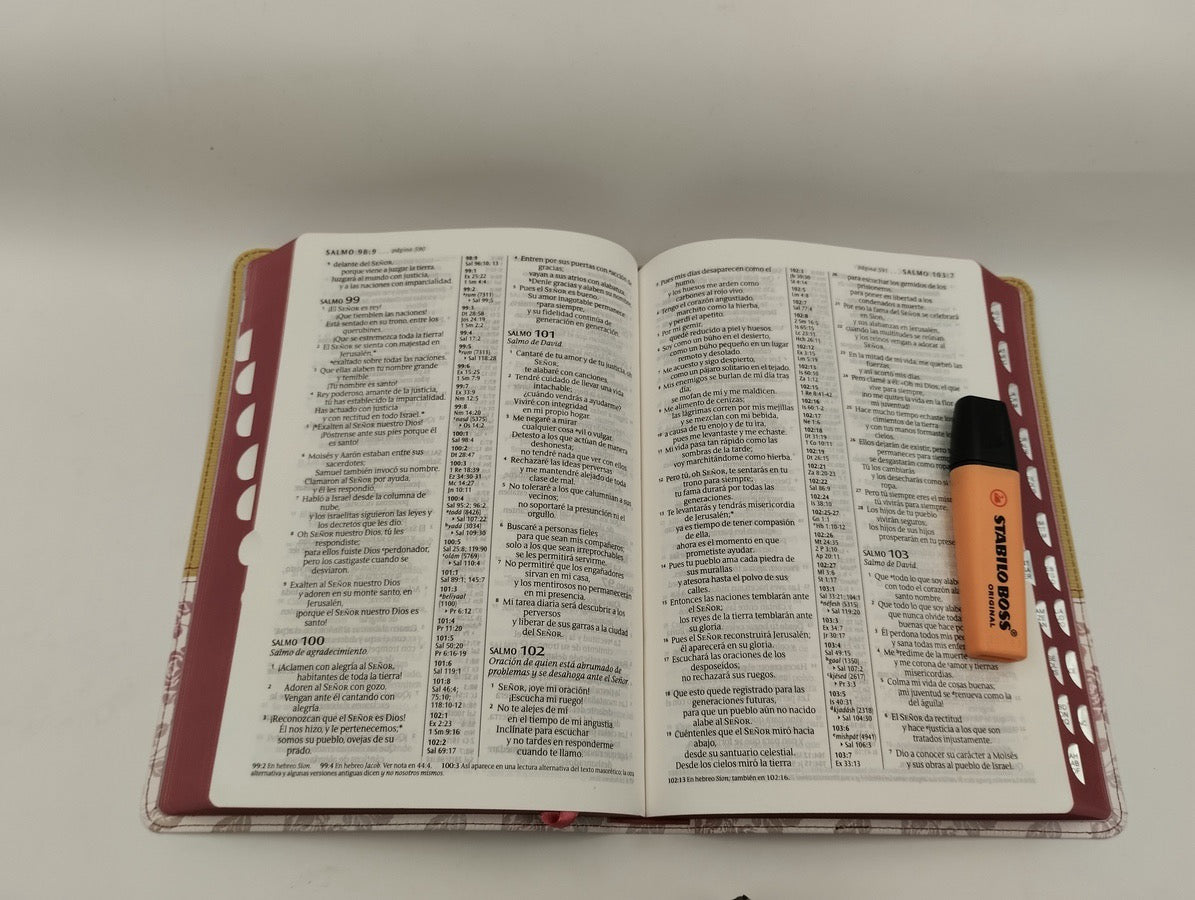 SALMO 98:9 . . . página 590
9 delante del SEÑOR,
porque viene a juzgar la tierra.
Juzgará al mundo con justicia,
y a las naciones con imparcialidad.
SALMO 99
1 ¡El SEÑOR es rey!
¡Que tiemblen las naciones!
Está sentado en su trono, entre los
querubines.
¡Que se estremezca toda la tierra!
2 El SEÑOR se sienta con majestad en
Jerusalén,*
exaltado sobre todas las naciones.
3 Que ellas alaben tu nombre grande
y temible.
¡Tu nombre es santo!
4 Rey poderoso, amante de la justicia,
tú has establecido la imparcialidad.
Has actuado con justicia
y con rectitud en todo Israel.*
5 ¡Exalten al SEÑOR nuestro Dios!
¡Póstrense ante sus pies porque él
es santo!
6 Moisés y Aarón estaban entre sus
sacerdotes;
Samuel también invocó su nombre.
Clamaron al SEÑOR por ayuda,
y él les respondió.
7 Habló a Israel desde la columna de
nube,
y los israelitas siguieron las leyes y
los decretos que les dio.
8 Oh SEÑOR, nuestro Dios, tú les
respondiste;
para ellos fuiste Dios perdonador,
pero los castigaste cuando se
desviaron.
9 Exalten al SEÑOR nuestro Dios
y adoren en su monte santo, en
Jerusalén,
¡porque el SEÑOR nuestro Dios es
santo!
SALMO 100
Salmo de agradecimiento.
1 ¡Aclamen con alegría al SEÑOR,
habitantes de toda la tierra!
2 Adoren al SEÑOR con gozo.
Vengan ante él cantando con
alegría.
3 ¡Reconozcan que el SEÑOR es Dios!
Él nos hizo, y le pertenecemos;*
somos su pueblo, ovejas de su
prado.
98:9
Sal 96:10, 13
99:1
Ex 25:22
1 Sm 4:4
99:2
rum (7311)
Sal 99:5
99:3
Dt 28:58
Jos 24:19
1 Sm 2:2
99:4
Sal 17:2
99:5
rum (7311)
Sal 118:28
99:6
Ex 15:25
1 Sm 7:9
99:7
Ex 33:9
Nm 12:5
99:8
Nm 14:20
nasa' (5375)
Os 14:2
100:1
Sal 98:4
100:2
Dt 28:47
100:3
1 Re 18:39
Ez 34:30-31
Mc 14:27
Jn 10:11
100:4
Sal 95:2; 96:2
todá (8426)
Sal 107:22
yadá (3034)
Sal 109:30
100:5
Sal 25:8; 119:90
olám (5769)
Sal 110:4
101:1
Sal 89:1; 145:7
101:3
beliyaal
(1100)
Pr 6:12
101:4
Pr 11:20
101:5
Sal 50:20
Pr 6:16-19
101:6
Sal 119:1
101:8
Sal 46:4;
75:10;
118:10-12
102:1
Ex 2:23
1 Sm 9:16
102:2
Sal 69:17
4 Entren por sus puertas con acción de
gracias;
vayan a sus atrios con alabanza.
Denle gracias y alaben su nombre.
5 Pues el SEÑOR es bueno.
Su amor inagotable permanece
para siempre,
y su fidelidad continúa de
generación en generación.
SALMO 101
Salmo de David.
1 Cantaré de tu amor y de tu justicia, oh
SEÑOR;
te alabaré con canciones.
2 Tendré cuidado de llevar una vida
intachable;
¿cuándo vendrás a ayudarme?
Viviré con integridad
en mi propio hogar.
3 Me negaré a mirar
cualquier cosa vil o vulgar.
Detesto a los que actúan de manera
deshonesta;
no tendré nada que ver con ellos.
4 Rechazaré las ideas perversas
y me mantendré alejado de toda
clase de mal.
5 No toleraré a los que calumnian a sus
vecinos;
no soportaré la presunción ni el
orgullo.
6 Buscaré a personas fieles
para que sean mis compañeros;
solo a los que sean irreprochables
se les permitirá servirme.
7 No permitiré que los engañadores
sirvan en mi casa,
y los mentirosos no permanecerán
en mi presencia.
8 Mi tarea diaria será descubrir a los
perversos
y liberar de sus garras a la ciudad
del SEÑOR.
SALMO 102
Oración de quien está abrumado de
problemas y se desahoga ante el SEÑOR.
1 SEÑOR, ¡oye mi oración!
¡Escucha mi ruego!
2 No te alejes de mí
en el tiempo de mi angustia.
Inclínate para escuchar
y no tardes en responderme
cuando te llamo,
99:2 En hebreo Sion. 99:4 En hebreo Jacob. Ver nota en 44:4. 100:3 Así aparece en una lectura alternativa del texto masorético; la otra
alternativa y algunas versiones antiguas dicen y no nosotros mismos.
página 591 . . . SALMO 103:7
3 Pues mis días desaparecen como el
humo,
y los huesos me arden como
carbones al rojo vivo.
4 Tengo el corazón angustiado,
marchito como la hierba,
y perdí el apetito.
5 Por mi gemir,
quedé reducido a piel y huesos.
6 Soy como un búho en el desierto,
como un búho pequeño en un lugar
remoto y desolado.
7 Me acuesto y sigo despierto,
como un pájaro solitario en el tejado.
8 Mis enemigos se burlan de mí día tras
día;
se mofan de mí y me maldicen.
9 Me alimento de cenizas;
las lágrimas corren por mis mejillas
y se mezclan con mi bebida,
10 a causa de tu enojo y de tu ira,
pues me levantaste y me echaste.
11 Mi vida pasa tan rápido como las
sombras de la tarde;
voy marchitándome como hierba.
12 Pero tú, oh SEÑOR, te sentarás en tu
trono para siempre;
tu fama durará por todas las
generaciones.
13 Te levantarás y tendrás misericordia
de Jerusalén;*
ya es tiempo de tener compasión
de ella,
ahora es el momento en que
prometiste ayudar.
14 Pues tu pueblo ama cada piedra de
sus murallas
y atesora hasta el polvo de sus
calles.
15 Entonces las naciones temblarán ante
el SEÑOR;
los reyes de la tierra temblarán ante
su gloria.
16 Pues el SEÑOR reconstruirá Jerusalén;
él aparecerá en su gloria.
17 Escuchará las oraciones de los
desposeídos;
no rechazará sus ruegos.
18 Que esto quede registrado para las
generaciones futuras,
para que un pueblo aún no nacido
alabe al SEÑOR.
19 Cuéntenles que el SEÑOR miró hacia
abajo,
desde su santuario celestial.
Desde los cielos miró la tierra
102:3
St 4:14
102:5
Lm 4:8
102:7
Sal 77:4
102:8
2 Sm 16:5
Is 65:15
Lc 23:11
Hch 26:11
102:12
Ex 3:15
Lm 5:19
102:13
Is 60:10
Za 1:12
102:15
1 Re 8:41-42
102:16
Is 60:1-2
102:17
Ne 1:6
102:18
Dt 31:19
1 Co 10:11
102:19
Dt 26:15
102:21
Za 8:20-23
102:22
Sal 86:9
102:24
Is 38:10
102:25-27
Gn 1:1
Hb 1:10-12
102:26
Mt 24:35
2 P 3:10
Ap 20:11
102:27
Ml 3:6
St 1:17
103:1
Sal 33:21; 104:1
néfesh (5315)
Sal 119:20
103:3
Ex 34:7
Jr 30:17
103:4
Sal 49:15
gaal (1350)
Sal 107:2
kjésed (2617)
Pr 3:3
103:5
Is 40:31
kjaddásh (2318)
Sal 104:30
103:6
mishpát (4941)
Sal 106:3
103:7
Ex 33:13
20 para escuchar los gemidos de los
prisioneros,
para poner en libertad a los
condenados a muerte.
21 Por eso la fama del SEÑOR se celebrará
en Sion,
y sus alabanzas en Jerusalén,
22 cuando las multitudes se reúnan
y los reinos vengan a adorar al
SEÑOR.
23 En la mitad de mi vida, me quebró las
fuerzas,
y así acortó mis días.
24 Pero clamé a él: «Oh mi Dios, el que
vive para siempre,
¡no me quites la vida en la flor
mi juventud!
25 Hace mucho tiempo echaste los
cimientos de la tierra
y con tus manos formaste los
cielos.
26 Ellos dejarán de existir, pero
permaneces para siempre
se desgastarán como ropa
Tú los cambiarás
y los desecharás como si
ropa.
27 Pero tú siempre eres el mismo
tú vivirás para siempre.
28 Los hijos de tu pueblo
vivirán seguros;
los hijos de sus hijos
prosperarán en tu prese
SALMO 103
Salmo de David.
1 Que todo lo que soy alabe
con todo el corazón ala
santo nombre.
2 Que todo lo que soy alabe
que nunca olvide toda
buenas que hace po
3 Él perdona todos mis pec
y sana todas mis enfer
4 Me redime de la muerte
y me corona de amor y tiernas
misericordias.
5 Colma mi vida de cosas buenas;
¡mi juventud se renueva como la
del águila!
6 El SEÑOR da rectitud
y hace justicia a los que son
tratados injustamente.
7 Dio a conocer su carácter a Moisés
y sus obras al pueblo de Israel.
102:13 En hebreo Sion; también en 102:16.
STABILO BOSS®
ORIGINAL